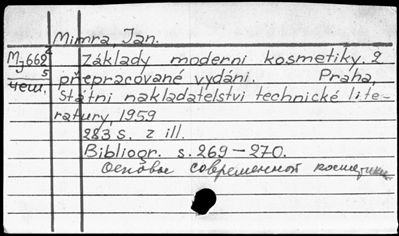 Mimra, Jan.
Mj662 2
5
чеш.
Základy moderní kosmetiky. 2
přepracované vydání. Praha,
Státní nakladatelství technické lite-
ratury, 1959
283 s. z ill.
Bibliogr. s. 269-270.
Основы современной косметики